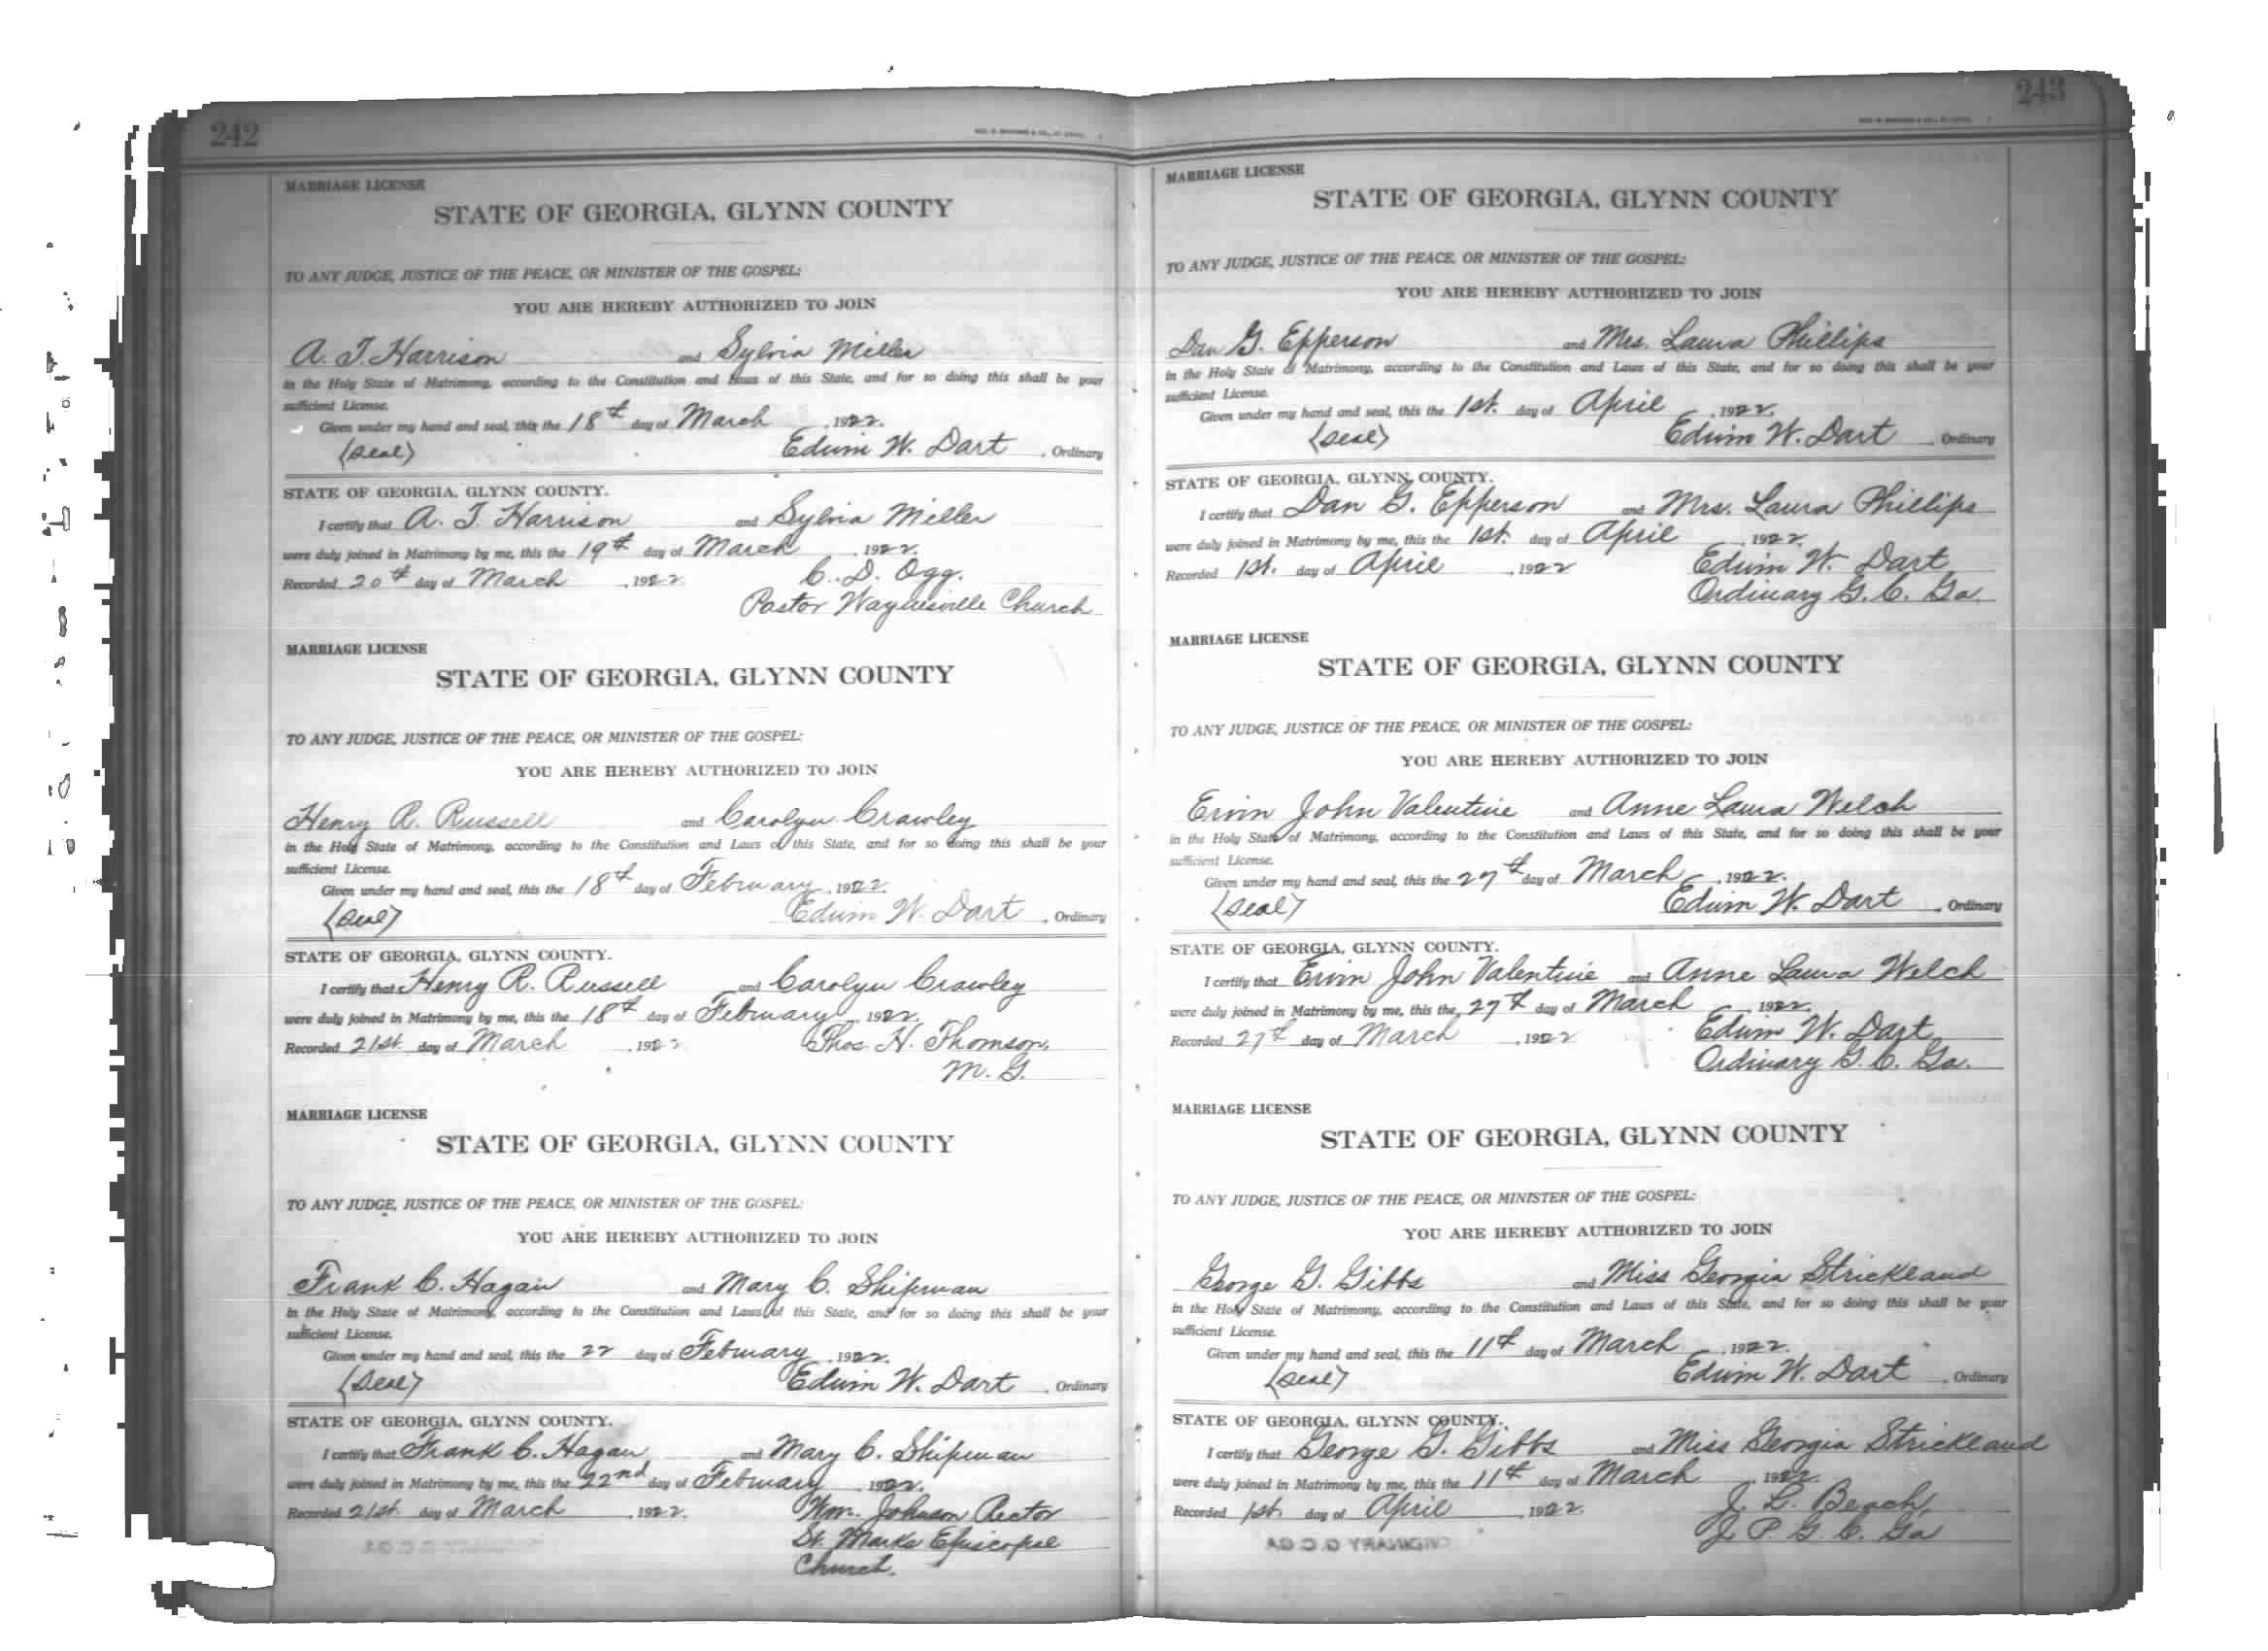 242
MARRIAGE LICENSE
STATE OF GEORGIA, GLYNN COUNTY
TO ANY JUDGE, JUSTICE OF THE PEACE, OR MINISTER OF THE GOSPEL:
YOU ARE HEREBY AUTHORIZED TO JOIN
A. T. Harrison and Sylvia Miller
in the Holy State of Matrimony, according to the Constitution and Laws of this State, and for so doing this shall be your
sufficient License.
Given under my hand and seal, this the 18th day of March, 1922.
(Seal) Edwin W. Dart, Ordinary
STATE OF GEORGIA, GLYNN COUNTY.
I certify that A. T. Harrison and Sylvia Miller
were duly joined in Matrimony by me, this the 19th day of March, 1922.
Recorded 20th day of March, 1922 C. D. Ogg.
Pastor Waynesville Church
MARRIAGE LICENSE
STATE OF GEORGIA, GLYNN COUNTY
TO ANY JUDGE, JUSTICE OF THE PEACE, OR MINISTER OF THE GOSPEL:
YOU ARE HEREBY AUTHORIZED TO JOIN
Henry R. Russell and Carolyn Crawley
in the Holy State of Matrimony, according to the Constitution and Laws of this State, and for so doing this shall be your
sufficient License.
Given under my hand and seal, this the 18th day of February, 1922.
(Seal) Edwin W. Dart, Ordinary
STATE OF GEORGIA, GLYNN COUNTY.
I certify that Henry R. Russell and Carolyn Crawley
were duly joined in Matrimony by me, this the 18th day of February, 1922.
Recorded 21st. day of March, 1922 Thos. H. Thomson,
M. G.
MARRIAGE LICENSE
STATE OF GEORGIA, GLYNN COUNTY
TO ANY JUDGE, JUSTICE OF THE PEACE, OR MINISTER OF THE GOSPEL:
YOU ARE HEREBY AUTHORIZED TO JOIN
Frank C. Hagan and Mary C. Shipman
in the Holy State of Matrimony, according to the Constitution and Laws of this State, and for so doing this shall be your
sufficient License.
Given under my hand and seal, this the 22 day of February, 1922.
(Seal) Edwin W. Dart, Ordinary
STATE OF GEORGIA, GLYNN COUNTY.
I certify that Frank C. Hagan and Mary C. Shipman
were duly joined in Matrimony by me, this the 22nd day of February, 1922.
Recorded 21st. day of March, 1922. Wm. Johnson Rector
St. Marks Episcopal
Church.
243
MARRIAGE LICENSE
STATE OF GEORGIA, GLYNN COUNTY
TO ANY JUDGE, JUSTICE OF THE PEACE, OR MINISTER OF THE GOSPEL:
YOU ARE HEREBY AUTHORIZED TO JOIN
Dan G. Epperson and Mrs. Laura Phillips
in the Holy State of Matrimony, according to the Constitution and Laws of this State, and for so doing this shall be your
sufficient License.
Given under my hand and seal, this the 1st. day of April, 1922.
(Seal) Edwin W. Dart, Ordinary
STATE OF GEORGIA, GLYNN COUNTY.
I certify that Dan G. Epperson and Mrs. Laura Phillips
were duly joined in Matrimony by me, this the 1st. day of April, 1922.
Recorded 1st. day of April, 1922 Edwin W. Dart
Ordinary G. C. Ga.
MARRIAGE LICENSE
STATE OF GEORGIA, GLYNN COUNTY
TO ANY JUDGE, JUSTICE OF THE PEACE, OR MINISTER OF THE GOSPEL:
YOU ARE HEREBY AUTHORIZED TO JOIN
Ervin John Valentine and Anne Laura Welch
in the Holy State of Matrimony, according to the Constitution and Laws of this State, and for so doing this shall be your
sufficient License.
Given under my hand and seal, this the 27th day of March, 1922.
(Seal) Edwin W. Dart, Ordinary
STATE OF GEORGIA, GLYNN COUNTY.
I certify that Ervin John Valentine and Anne Laura Welch
were duly joined in Matrimony by me, this the 27th day of March, 1922.
Recorded 27th day of March, 1922 Edwin W. Dart
Ordinary G. C. Ga.
MARRIAGE LICENSE
STATE OF GEORGIA, GLYNN COUNTY
TO ANY JUDGE, JUSTICE OF THE PEACE, OR MINISTER OF THE GOSPEL:
YOU ARE HEREBY AUTHORIZED TO JOIN
George G. Gibbs and Miss Georgia Strickland
in the Holy State of Matrimony, according to the Constitution and Laws of this State, and for so doing this shall be your
sufficient License.
Given under my hand and seal, this the 11th day of March, 1922.
(Seal) Edwin W. Dart, Ordinary
STATE OF GEORGIA, GLYNN COUNTY.
I certify that George G. Gibbs and Miss Georgia Strickland
were duly joined in Matrimony by me, this the 11th day of March, 1922.
Recorded 1st. day of April, 1922 J. L. Beach,
J. P. G. C. Ga
ORDINARY G. C. GA